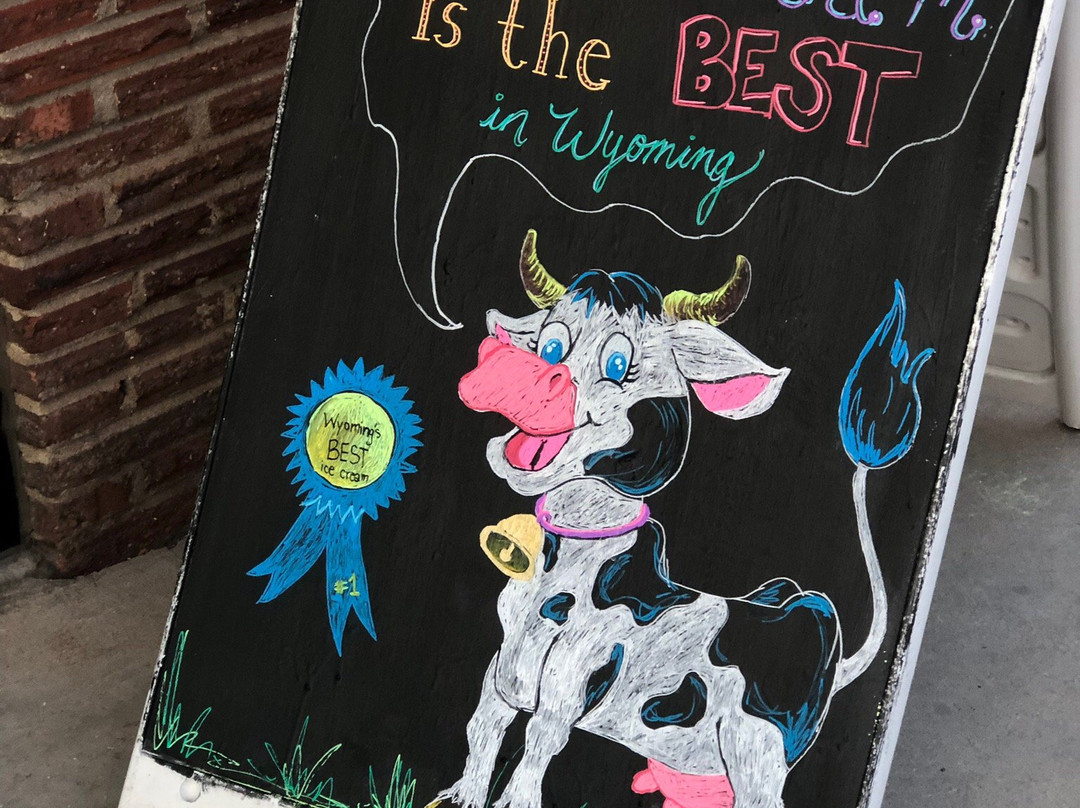 is the BEST
in Wyoming
Wyoming's
BEST
ice cream
#1